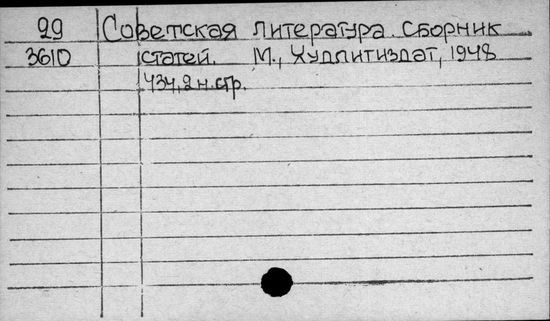 29 Советская литература. Сборник
3610 статей. М., Худлитиздат, 1948
434,2 н. стр.